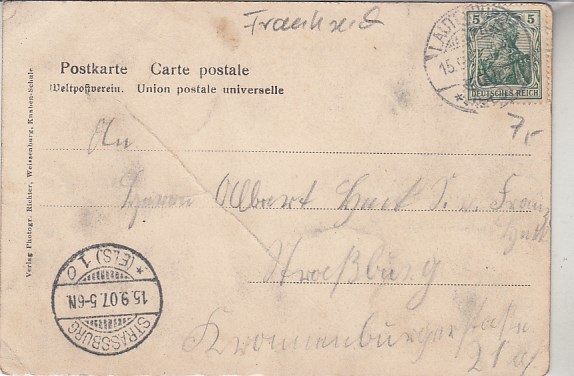 Frankreich
Postkarte Carte postale
Weltpostverein. Union postale universelle
5 5
DEUTSCHES REICH
15.9
7,-
An
Herrn Albert Huck S. v. Franz
Huck
Straßburg
Kronenburgerstraße
21 a/
Verlag Photogr. Richter, Weissenburg, Knaben-Schule
STRASSBURG
15.9.07.5-6N.
* (ELS.) 1 o